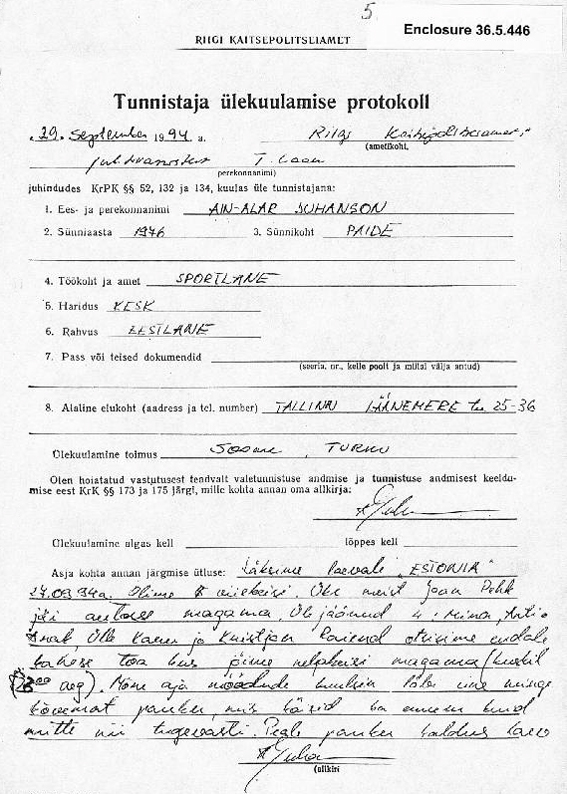 5
Enclosure 36.5.446
RIIGI KAITSEPOLITSEIAMET
Tunnistaja ülekuulamise protokoll
"29. September 1994 a. Riigi
(ametikoht,
T. Laan
perekonnanimi)
juhindudes KrPK §§ 52, 132 ja 134, kuulas üle tunnistajana:
1. Ees- ja perekonnanimi AIN-ALAR JUHANSON
2. Sünniaasta 1976 3. Sünnikoht PAIDE
4. Töökoht ja amet SPORTLANE
5. Haridus KESK
6. Rahvus EESTLANE
7. Pass või teised dokumendid
(seeria, nr., kelle poolt ja millal välja antud)
8. Alaline elukoht (aadress ja tel. number) TALLINN LÄÄNEMERE tee 25-36
Ülekuulamine toimus Soome, TURKU
Olen hoiatatud vastutusest teadvalt valetunnistuse andmise ja tunnistuse andmisest keeldu-
mise eest KrK §§ 173 ja 175 järgi, mille kohta annan oma allkirja:
Ülekuulamine algas kell lõppes kell
Asja kohta annan järgmise ütluse: Läksime laevale "ESTONIA"
27.09.94a. Olime viiekesi. Üks meist Jaan Pehk
jäi autosse magama. Üle jäänud 4: Mina,
ja Kristjan otsisime endale
kahese toa kus jäime neljakesi magama (kuskil
23.00 aeg). Mõne aja möödudes kuulsin läbi une mingit
kõvemat pauku, mis käisid ka ennem kuid
mitte nii tugevasti. Peale pauku kaldus laev
(allkiri